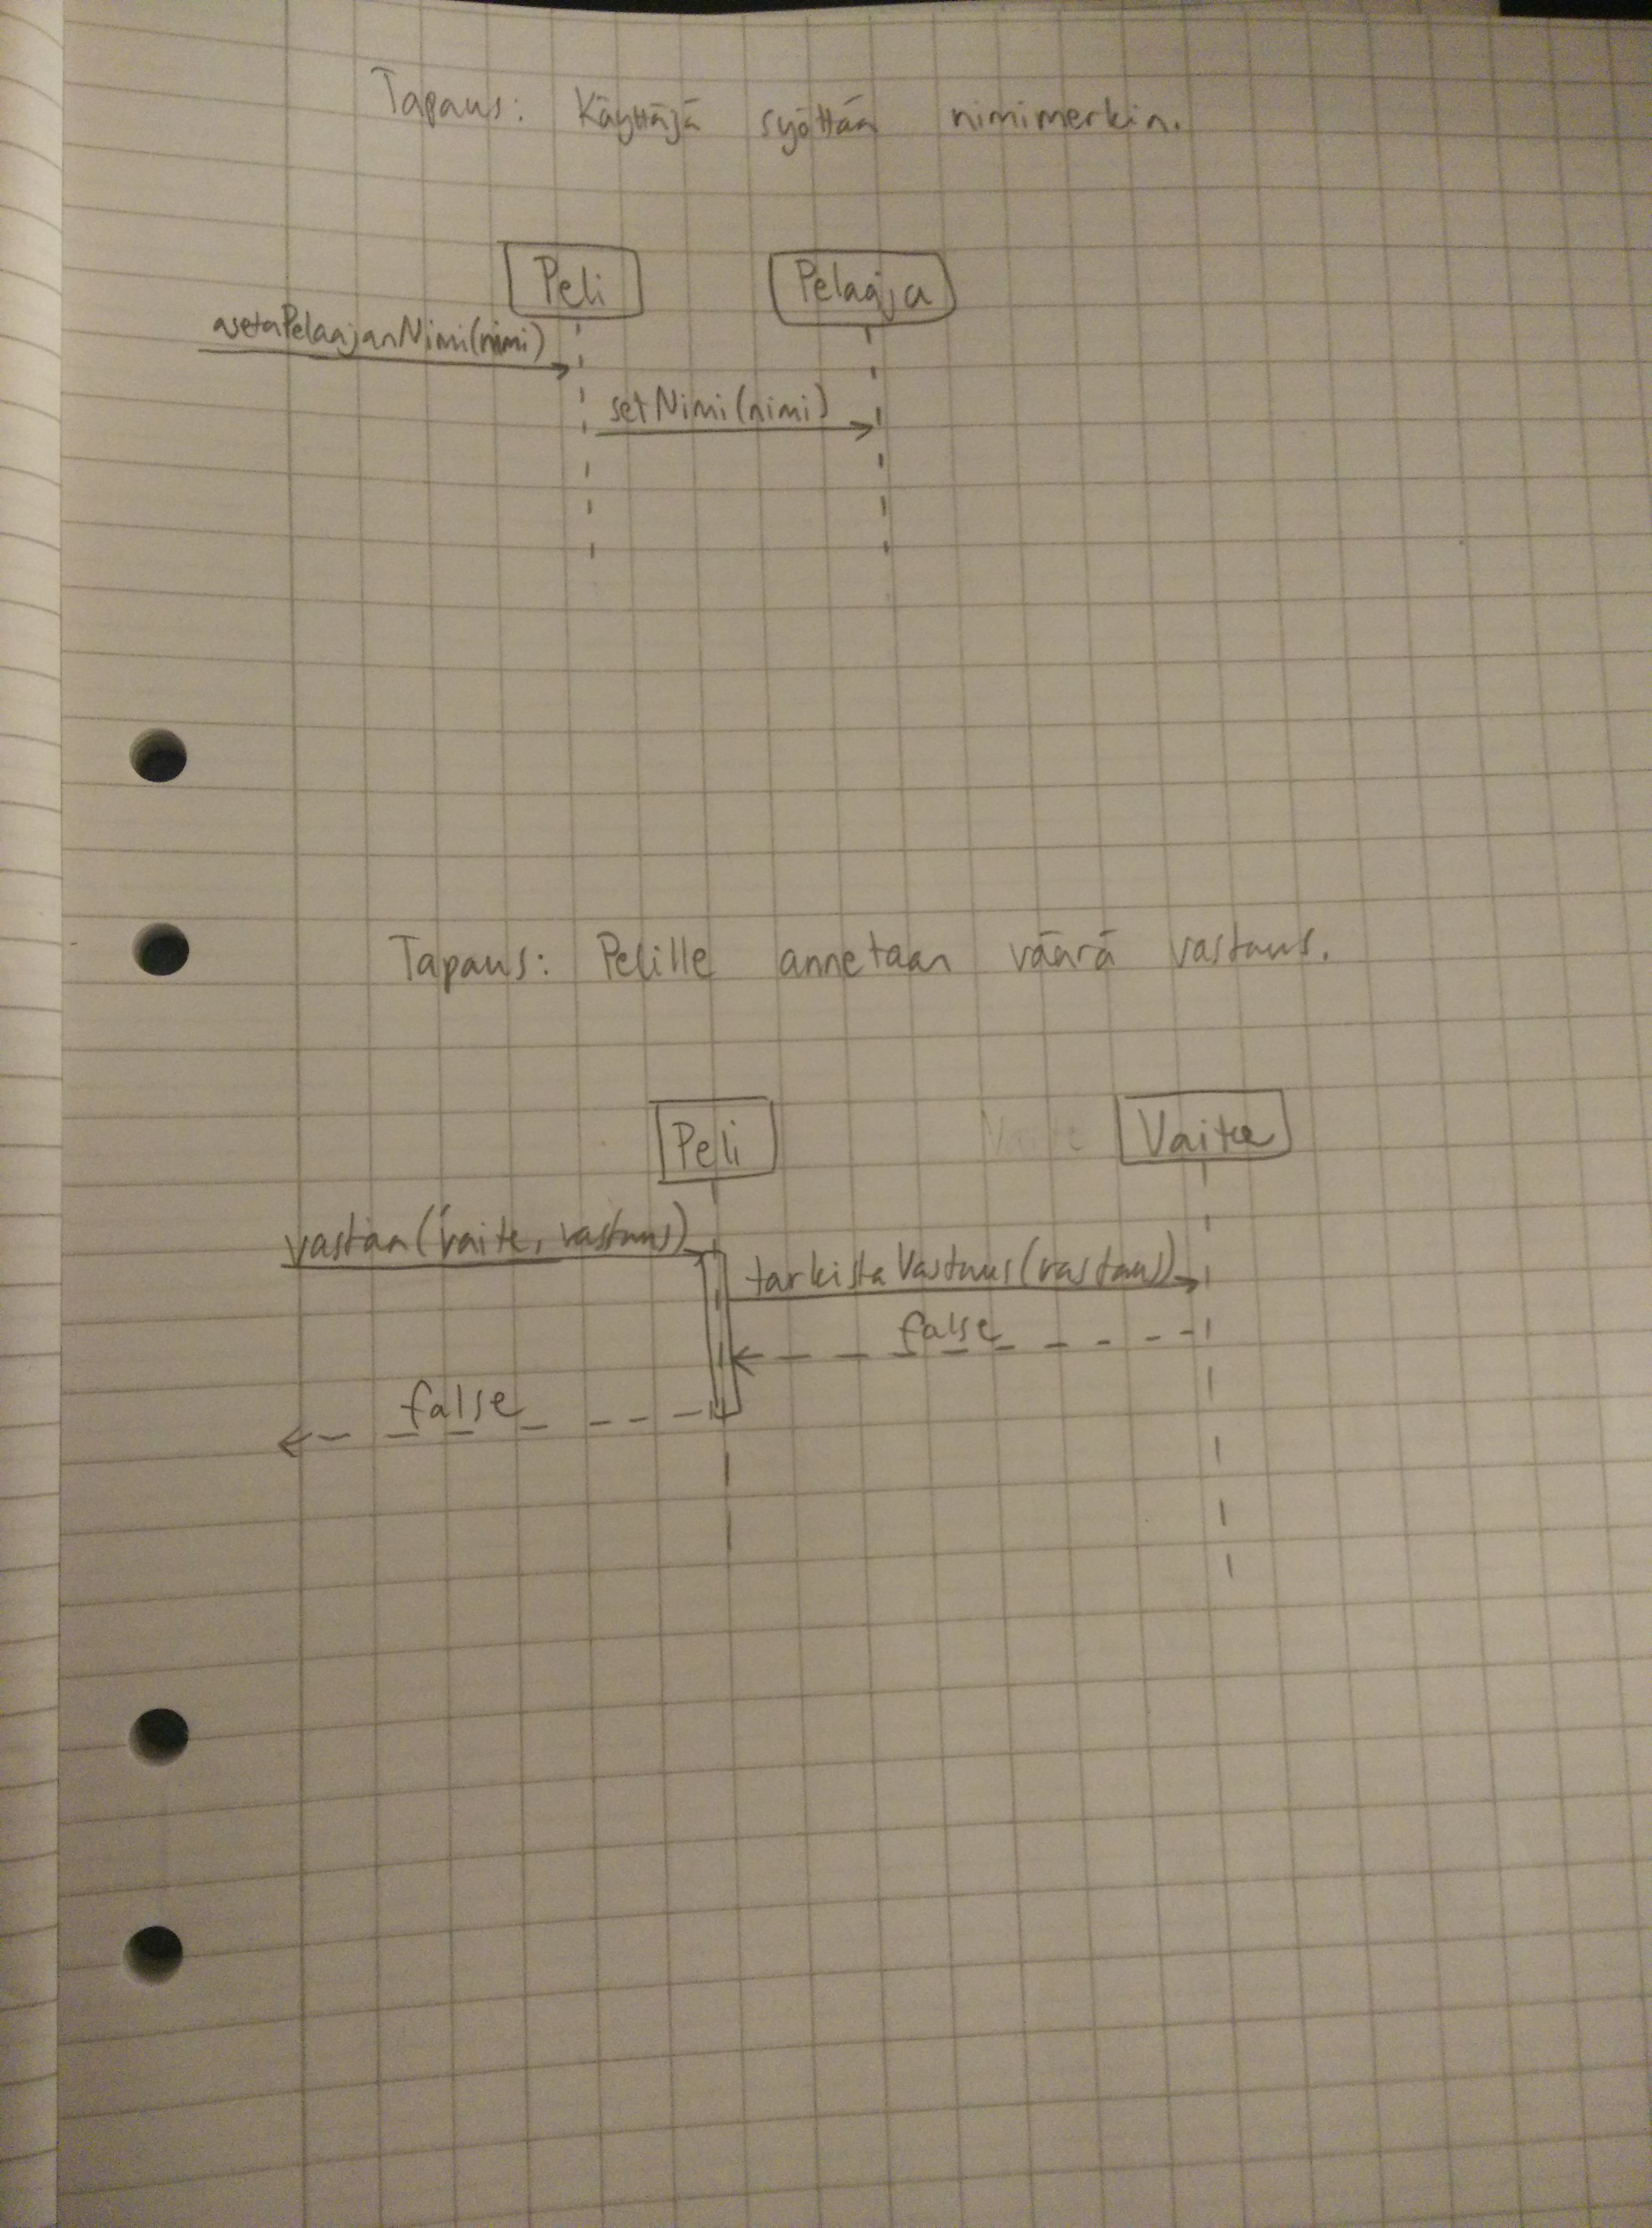 Tapaus: Käyttäjä syöttää nimimerkin.
Peli Pelaaja
asetaPelaajanNimi(nimi)
setNimi(nimi)
Tapaus: Pelille annetaan väärä vastaus.
Peli Vaite
vastaa(vaite, vastaus)
tarkistaVastaus(vastaus)
false
false